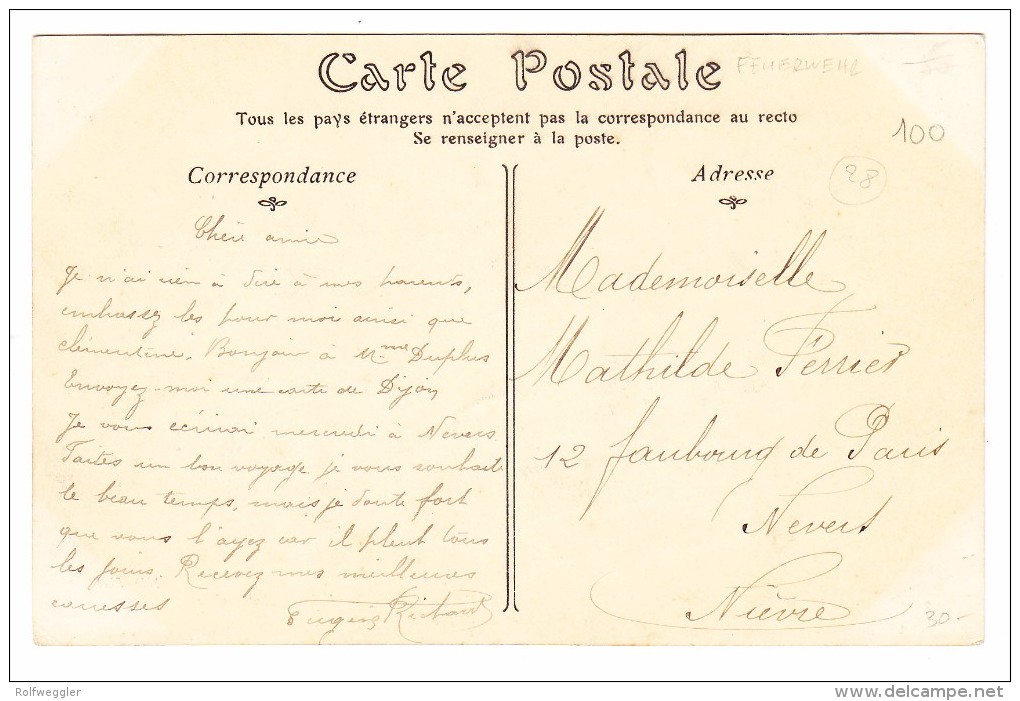 Carte Postale
FEUERWEHR
Tous les pays étrangers n'acceptent pas la correspondance au recto
Se renseigner à la poste.
100
Correspondance
Adresse
28
Chère amie
Je n'ai rien à dire à mes parents,
embrassez les pour moi ainsi que
clémentine. Bonjour à Mme Duplus
Envoyez-moi une carte de Dijon
Je vous écrirai mercredi à Nevers
Faites un bon voyage je vous souhaite
le beau temps, mais je doute fort
que vous l'ayez car il pleut tous
les jours. Recevez mes meilleures
caresses
Eugénie Richard
Mademoiselle
Mathilde Perrier
12 faubourg de Paris
Nevers
Nièvre
30-
Rolfweggler
www.delcampe.net